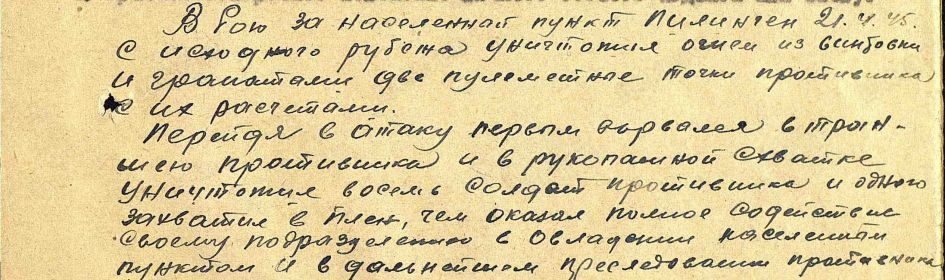 В бою за населенный пункт Пилинчен 21.4.45.
с исходного рубежа уничтожил огнем из винтовки
и гранатами две пулеметные точки противника
с их расчетами.
Перейдя в атаку первым ворвался в тран-
шею противника и в рукопашной схватке
уничтожил восемь солдат противника и одного
захватил в плен, чем оказал полное содействие
своему подразделению в овладении населенным
пунктом и в дальнейшем преследовании противника